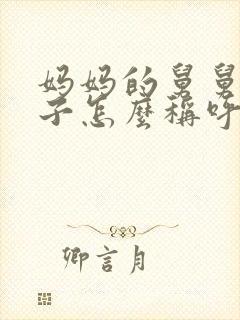 妈妈的舅舅
子怎麼稱呼
卿言月